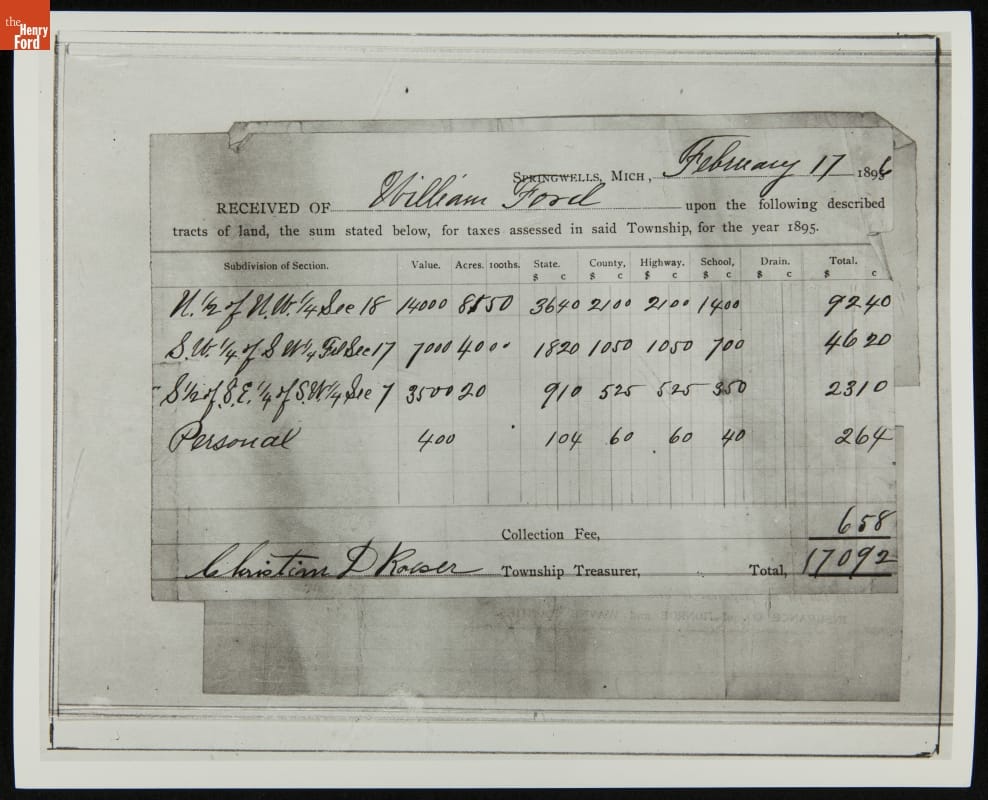 the
Henry
Ford
SPRINGWELLS, MICH, February 17 1896
RECEIVED OF William Ford upon the following described
tracts of land, the sum stated below, for taxes assessed in said Township, for the year 1895.
Subdivision of Section. Value. Acres. 100ths. State. $ c County, $ c Highway. $ c School, $ c Drain. $ c Total. $ c
N. 1/2 of N.W. 1/4 Sec 18 14000 81 50 36 40 21 00 21 00 14 00 92 40
S.W. 1/4 of S W 1/4 Sec 17 7000 40 00 18 20 10 50 10 50 7 00 46 20
S 1/2 of S.E. 1/4 of S.W 1/4 Sec 7 3500 20 9 10 5 25 5 25 3 50 23 10
Personal 400 1 04 60 60 40 2 64
Collection Fee, 6 58
Christian D Roeser Township Treasurer, Total, 170 92
INSURANCE CO. of MONROE and WAYNE